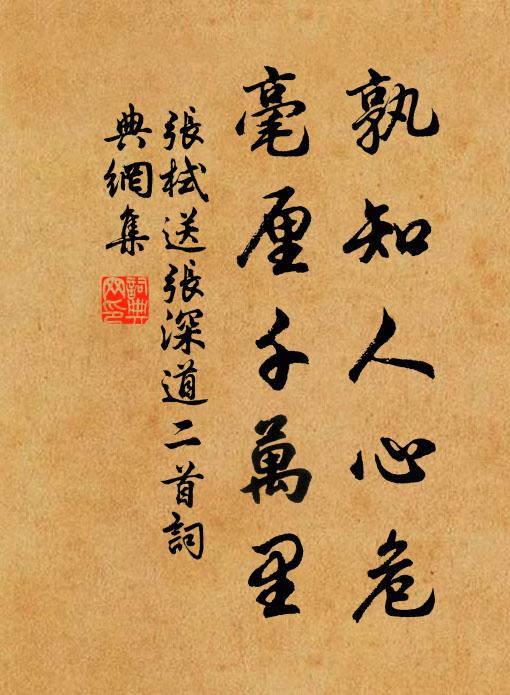 孰知人心危
毫厘千萬里
張栻送張深道二首詞
典網集
詞典
网印